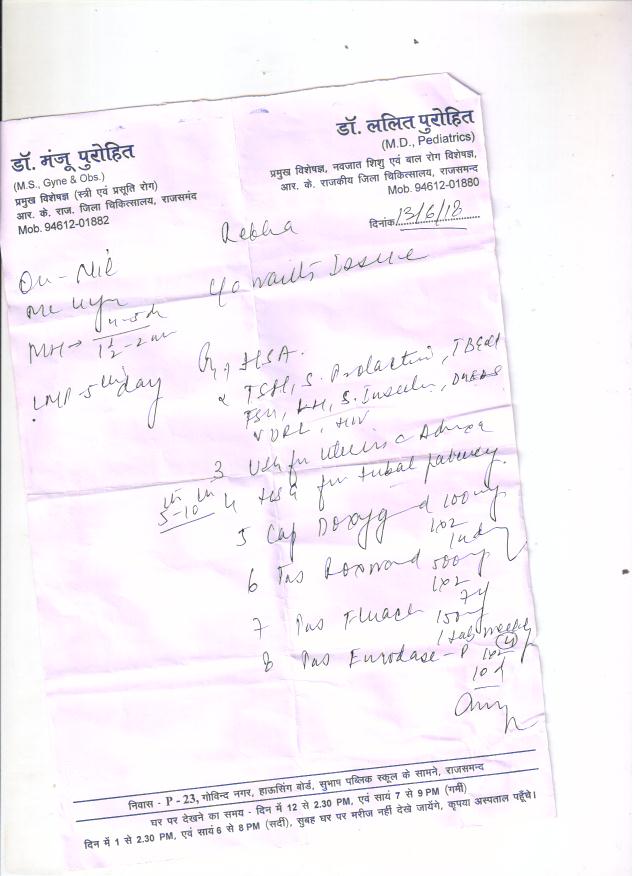 डॉ. मंजू पुरोहित
(M.S., Gyne & Obs.)
प्रमुख विशेषज्ञ (स्त्री एवं प्रसूति रोग)
आर. के. राज. जिला चिकित्सालय, राजसमंद
Mob. 94612-01882
डॉ. ललित पुरोहित
(M.D., Pediatrics)
प्रमुख विशेषज्ञ, नवजात शिशु एवं बाल रोग विशेषज्ञ,
आर. के. राजकीय जिला चिकित्सालय, राजसमन्द
Mob. 94612-01880
दिनांक 13/6/18
Rekha
OH - Nil
Issue
MH → 4-5d
1½-2m
LMP 5th day
HSA.
2 TSH, S. Prolactin,
FSH, LH, S. Insulin, DHEAS
VDRL, HIV
3 USG for Uterus & Adnexa
5th-10th 4 HSG for tubal patency.
5 Cap Doxy 100mg
1x2
6 Tab 500mg
1x2
7d
7 Tab 150mg
1 tab weekly (4)
8 Tab - P 1x2
10d
निवास - P - 23, गोविन्द नगर, हाऊसिंग बोर्ड, सुभाष पब्लिक स्कूल के सामने, राजसमन्द
घर पर देखने का समय - दिन में 12 से 2.30 PM, एवं सायं 7 से 9 PM (गर्मी)
दिन में 1 से 2.30 PM, एवं सायं 6 से 8 PM (सर्दी), सुबह घर पर मरीज नहीं देखे जायेंगे, कृपया अस्पताल पहूँचे।